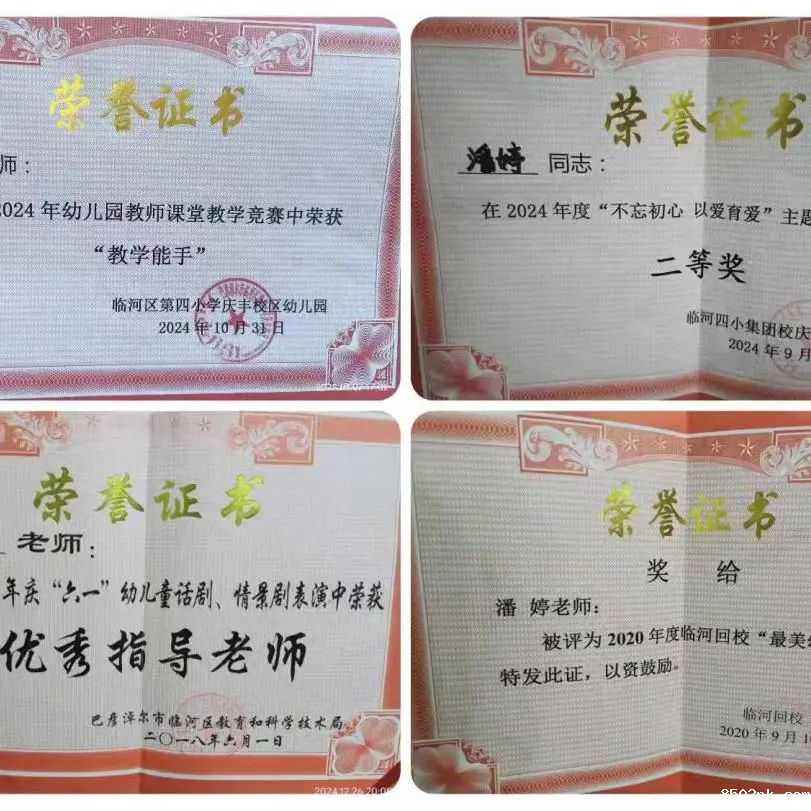 荣誉证书
师：
2024年幼儿园教师课堂教学竞赛中荣获
“教学能手”
临河区第四小学庆丰校区幼儿园
2024年10月31日
荣誉证书
潘婷 同志：
在2024年度“不忘初心 以爱育爱”主题
二等奖
临河四小集团校庆
2024年9月
荣誉证书
老师：
年庆“六一”幼儿童话剧、情景剧表演中荣获
优秀指导老师
巴彦淖尔市临河区教育和科学技术局
二〇一八年六月一日
2024.12.26 20:05
荣誉证书
奖 给
潘 婷老师：
被评为2020年度临河回校“最美
特发此证，以资鼓励。
临河回校
2020年9月1
8502pk.com